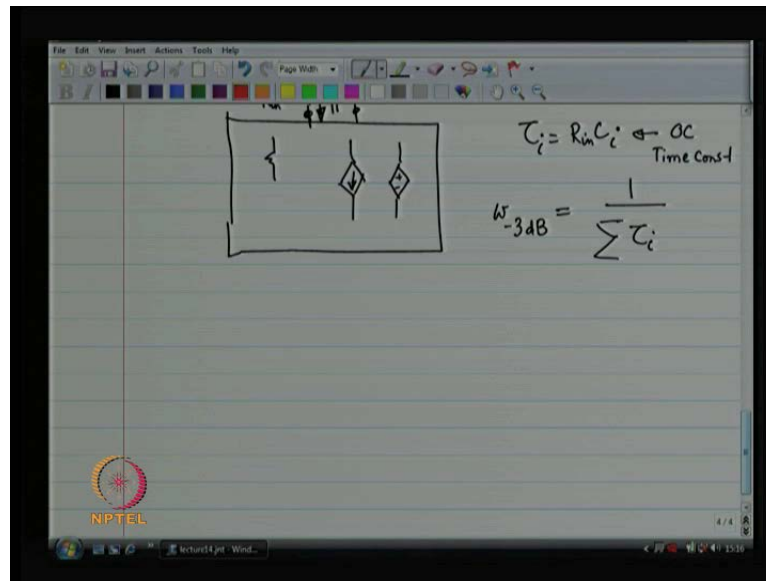 File Edit View Insert Actions Tools Help
Page Width
B I
τ_i = R_in C_i ← OC
Time Const
ω_-3dB = 1 / Σ τ_i
NPTEL
4 / 4
lecture14.jnt - Wind...
15:16